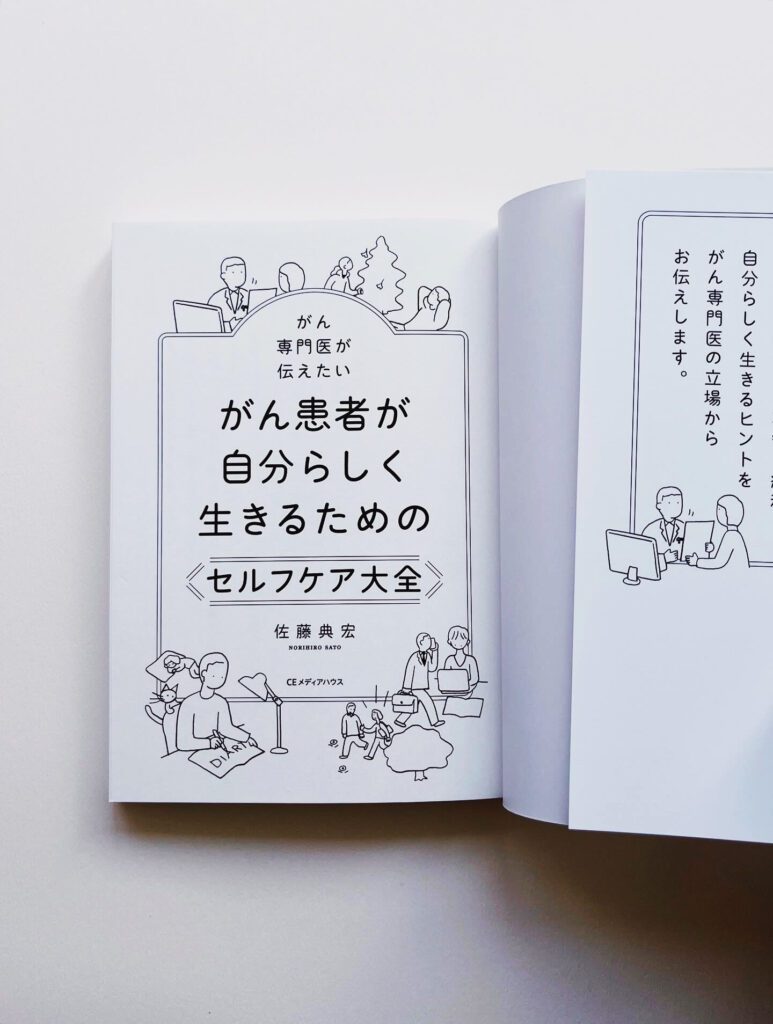 がん
専門医が
伝えたい
がん患者が
自分らしく
生きるための
セルフケア大全
佐藤典宏
NORIHIRO SATO
CEメディアハウス
DIARY
自分らしく生きるヒントを
がん専門医の立場から
お伝えします。